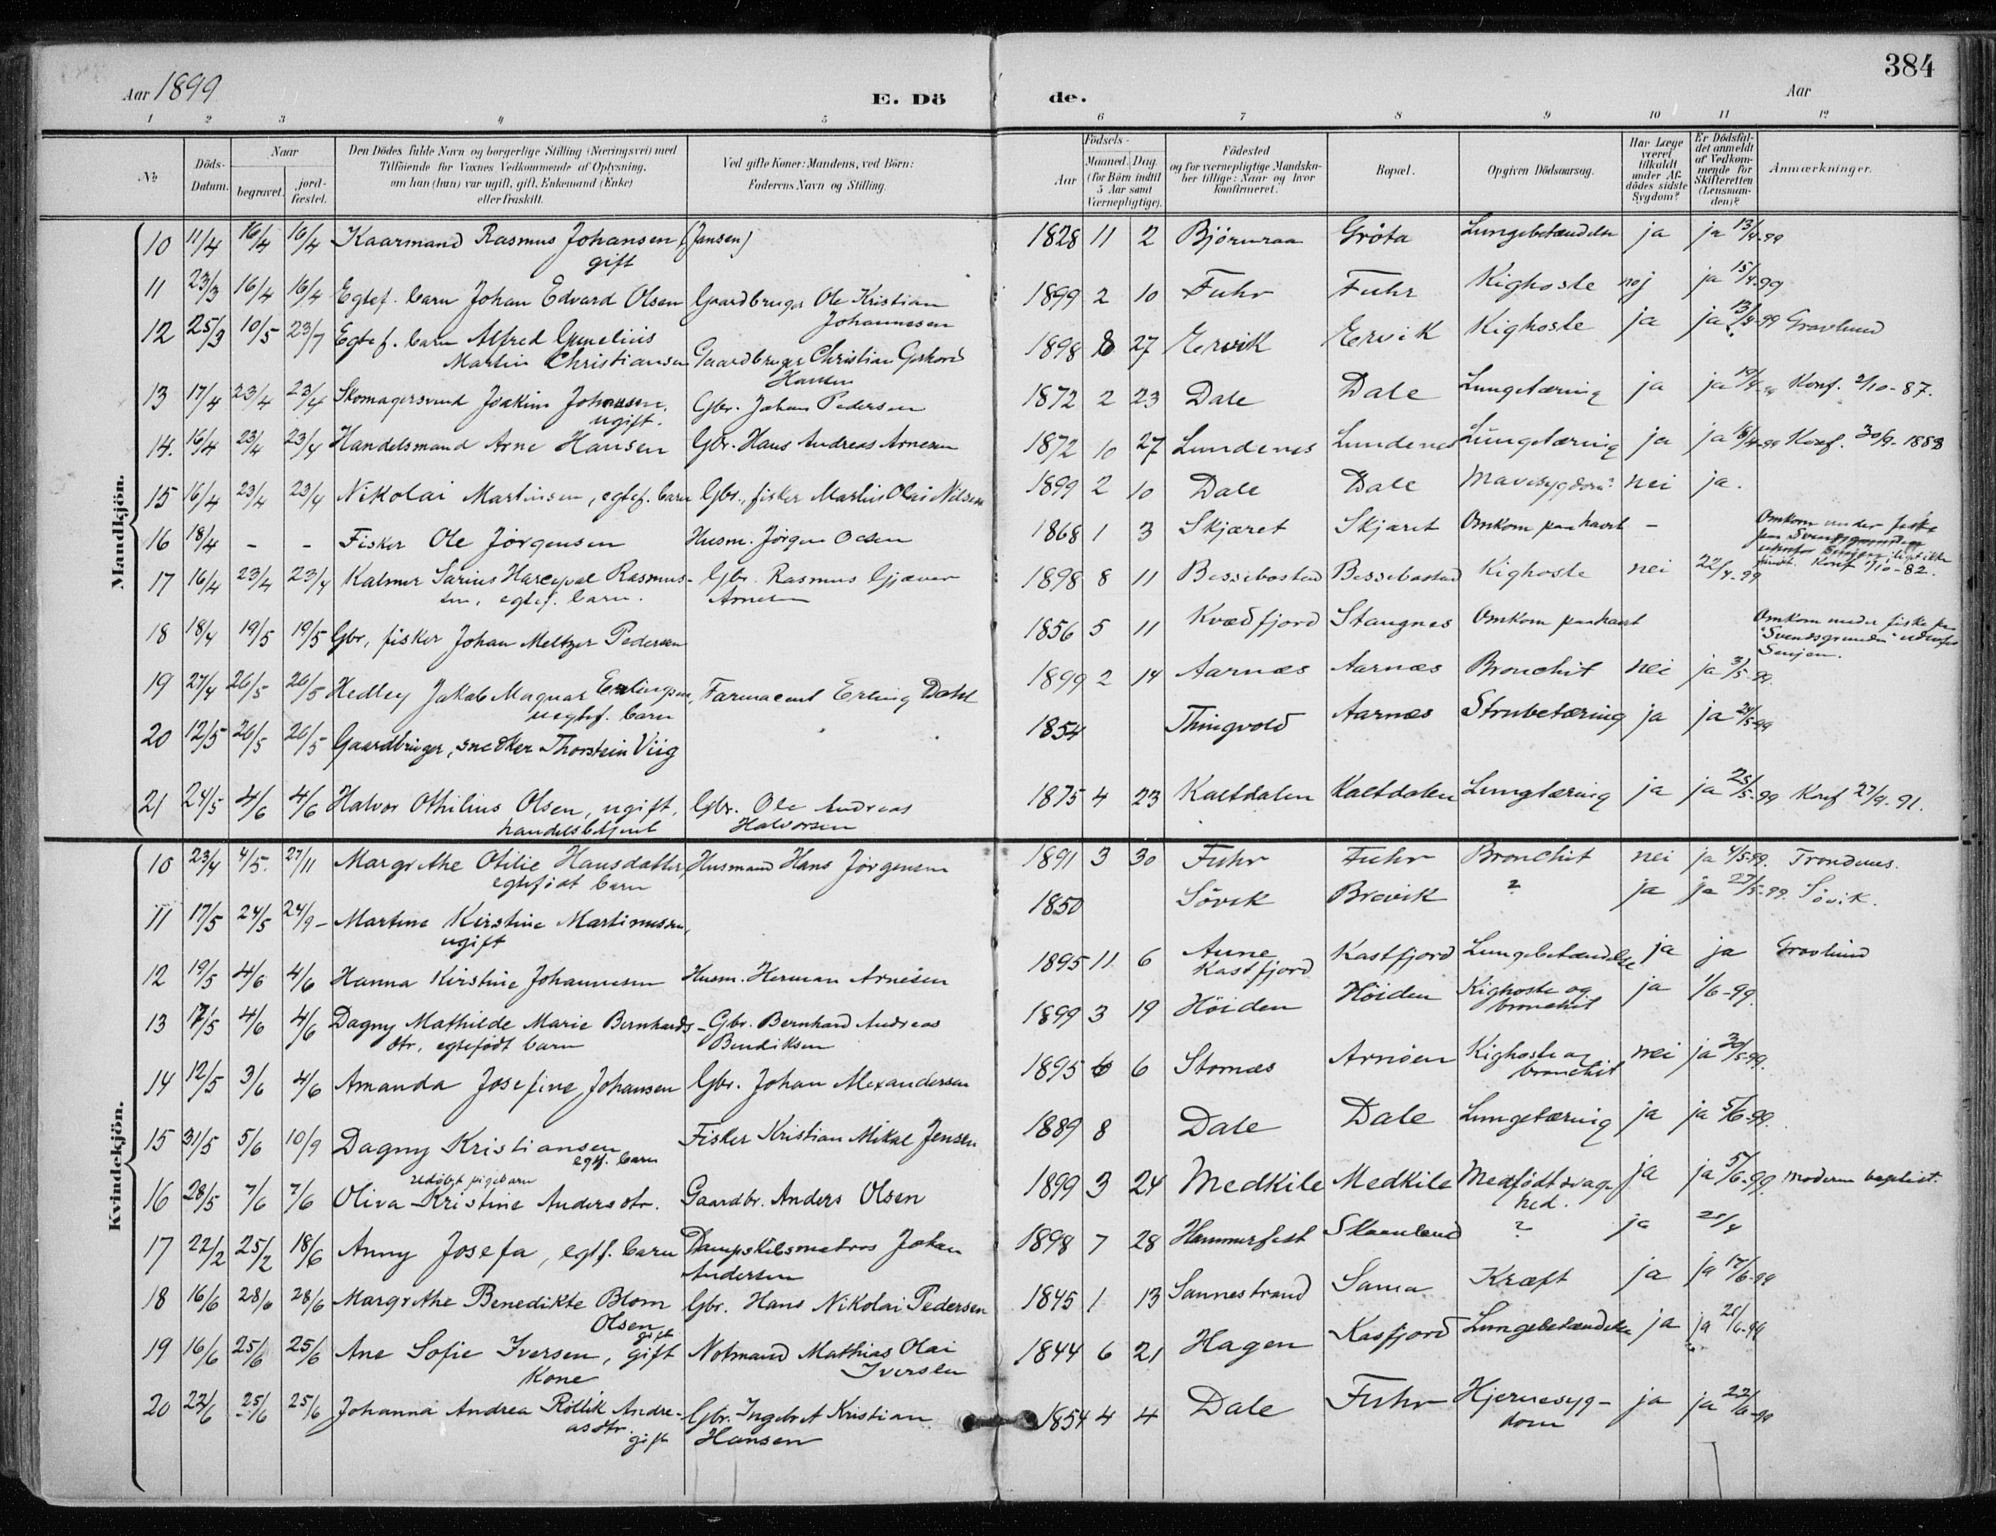 384
Aar 1899
E. Dö de.
Aar
1 2 3 4 5 6 7 8 9 10 11 12
№
Döds-Datum.
Naar
begravet. jord-fæstet.
Den Dödes fulde Navn og borgerlige Stilling (Næringsvei) med
Tilföiende for Voxnes Vedkommende af Oplysning,
om han (hun) var ugift, gift, Enkemand (Enke)
eller fraskilt.
Ved gifte Koner: Mandens, ved Börn:
Faderens Navn og Stilling.
Födsels-
Aar
Maaned. Dag.
(for Börn indtil
5 Aar samt
Værnepligtige).
Födested
og for værnepligtige Mandska-
ber tillige: Naar og hvor
konfirmeret.
Bopæl.
Opgiven Dödsaarsag.
Har Læge
været
tilkaldt
under Af-
dödes sidste
Sygdom?
Er Dödsfal-
det anmeldt
af Vedkom-
mende for
Skifteretten
(Lensman-
den)?
Anmærkninger.
Mandkjön.
10 11/4 16/4 16/4 Kaarmand Rasmus Johansen (Jansen) 1828 11 2 Björnraa Gröta Lungebetændelse ja ja 13/4-99
gift
11 23/3 16/4 16/4 Egtef. barn Johan Edvard Olsen Gaardbruger Ole Kristian 1899 2 10 Fuhr Fuhr Kighoste nej ja 15/4-99
Johannesen
12 25/3 10/5 23/7 Egtef. barn Alfred Gunelius 1898 8 27 Ervik Ervik Kighoste ja ja 13/4-99 Gravlund
Martin Christiansen Gaardbruger Christian
Hansen
13 17/4 23/4 23/4 Skomagersvend Joakim Johansen. Gbr. Johan Pedersen 1872 2 23 Dale Dale Lungetæring ja ja Konf. 2/10-87.
ugift.
14. 16/4 23/4 23/4 Handelsmand Arne Hansen Gbr. Hans Andreas Arnesen 1872 10 27 Lundenes Lundenes Lungetæring ja ja 18/4-99 Konf. 30/9-1888
15 16/4 23/4 23/4 Nikolai Martinsen, egtef. barn Gbr., fisker Martin Olai Nilsen 1899 2 10 Dale Dale Mavesygdom? nei ja.
16 18/4 - - Fisker Ole Jörgensen Husm. Jörgen Olsen 1868 1 3 Skjæret Skjæret Omkom paa havet - Omkom under fiske
paa Svendsgrunden
udenfor Senjen; liget ikke
fundet. Konf 1/10-82.
17 16/4 23/4 23/4 Kalmer Sarius Rasmus- Gbr. Rasmus Gjæver 1898 8 11 Bessebostad Bessebostad Kighoste nei 22/4-99
sen, egtef. barn. Arnesen
18 18/4 19/5 19/5 Gbr, fisker Johan Meltzer Pedersen 1856 5 11 Kvædfjord Stangnes Omkom paa havet Omkom under fiske paa
"Svendsgrunden" udenfor
Senjen.
19 27/4 26/5 26/5 Hedley Jakob Magnar Erlingsen, Farmaceut Erling Dahl 1899 2 14 Aarnæs Aarnæs Bronchit nei ja 3/5-99.
uegtef. barn
20 12/5 26/5 26/5 Gaardbruger, snedker Thorstein Viig 1854 Thingvold Aarnæs Strubetæring ja ja 24/5-99
21 24/5 4/6 4/6 Halvor Othilius Olsen, ugift, Gbr. Ole Andreas 1875 4 23 Kaltdalen Kaltdalen Lungetæring ja ja 25/5-99 Konf 27/9-91.
handelsbetjent Halvorsen
Kvindekjön.
10 23/4 4/5. 27/11 Margrethe Otilie Hansdatter, Husmand Hans Jörgensen 1891 3 30 Fuhr Fuhr Bronchit nei ja 4/5-99. Trondenes.
egtefödt barn
11 17/5 24/5 24/9- Martine Kirstine Martinussen, 1850 Sövik Brevik ? ja ja 27/5-99. Sövik.
ugift
12 19/5 4/6 4/6 Hanna Kirstine Johannesen Husm. Herman Arnesen 1895 11 6 Aune Kastfjord Lungebetændelse ja ja Gravlund
Kastfjord
13 17/5 4/6 4/6 Dagny Mathilde Marie Bernhards- Gbr. Bernhard Andreas 1899 3 19 Höiden Höiden Kighoste og ja 1/6-99.
dtr, egtefödt barn Bendiksen bronchit
14 12/5 3/6 4/6 Amanda Josefine Johansen Gbr. Johan Alexandersen 1895 6 6 Stornæs Arnöen Kighoste og nei ja 30/5-99.
bronchit
15 31/5 5/6 10/9 Dagny Kristiansen Fisker Kristian Mikal Jensen 1889 8 Dale Dale Lungetæring ja ja 5/6-99.
egtf. barn
uedöbt pigebarn
16 28/5 7/6 7/6 Oliva Kristine Andersdtr. Gaardbr. Anders Olsen 1899 3 24 Medkile Medkile Medfödt svag- ja ja 5/6-99. Moderen baptist.
hed.
17 22/2 25/2 18/6 Anny Josefa, egtf. barn Dampskibsmatros Johan 1898 7 28 Hammerfest Skaanland ? ja
Andersen
18 16/6 28/6 28/6 Margrethe Benedikte Blom Gbr. Hans Nikolai Pedersen 1845 1 13 Sannestrand Sama Kræft ja ja 17/6-99
Olsen
gift
19 16/6 25/6 25/6 Ane Sofie Iversen, gift Notmand Mathias Olai 1844 6 21 Hagen Kasfjord Lungebetændelse ja ja 21/6-99
Kone Iversen
20 22/6 25/6 25/6 Johanna Andrea Rollik Andre- Gbr. Ingebr.t Kristian 1854 4 4 Dale Fuhr Hjernesyg- ja ja 22/6-99
asdtr. Hansen dom
gift